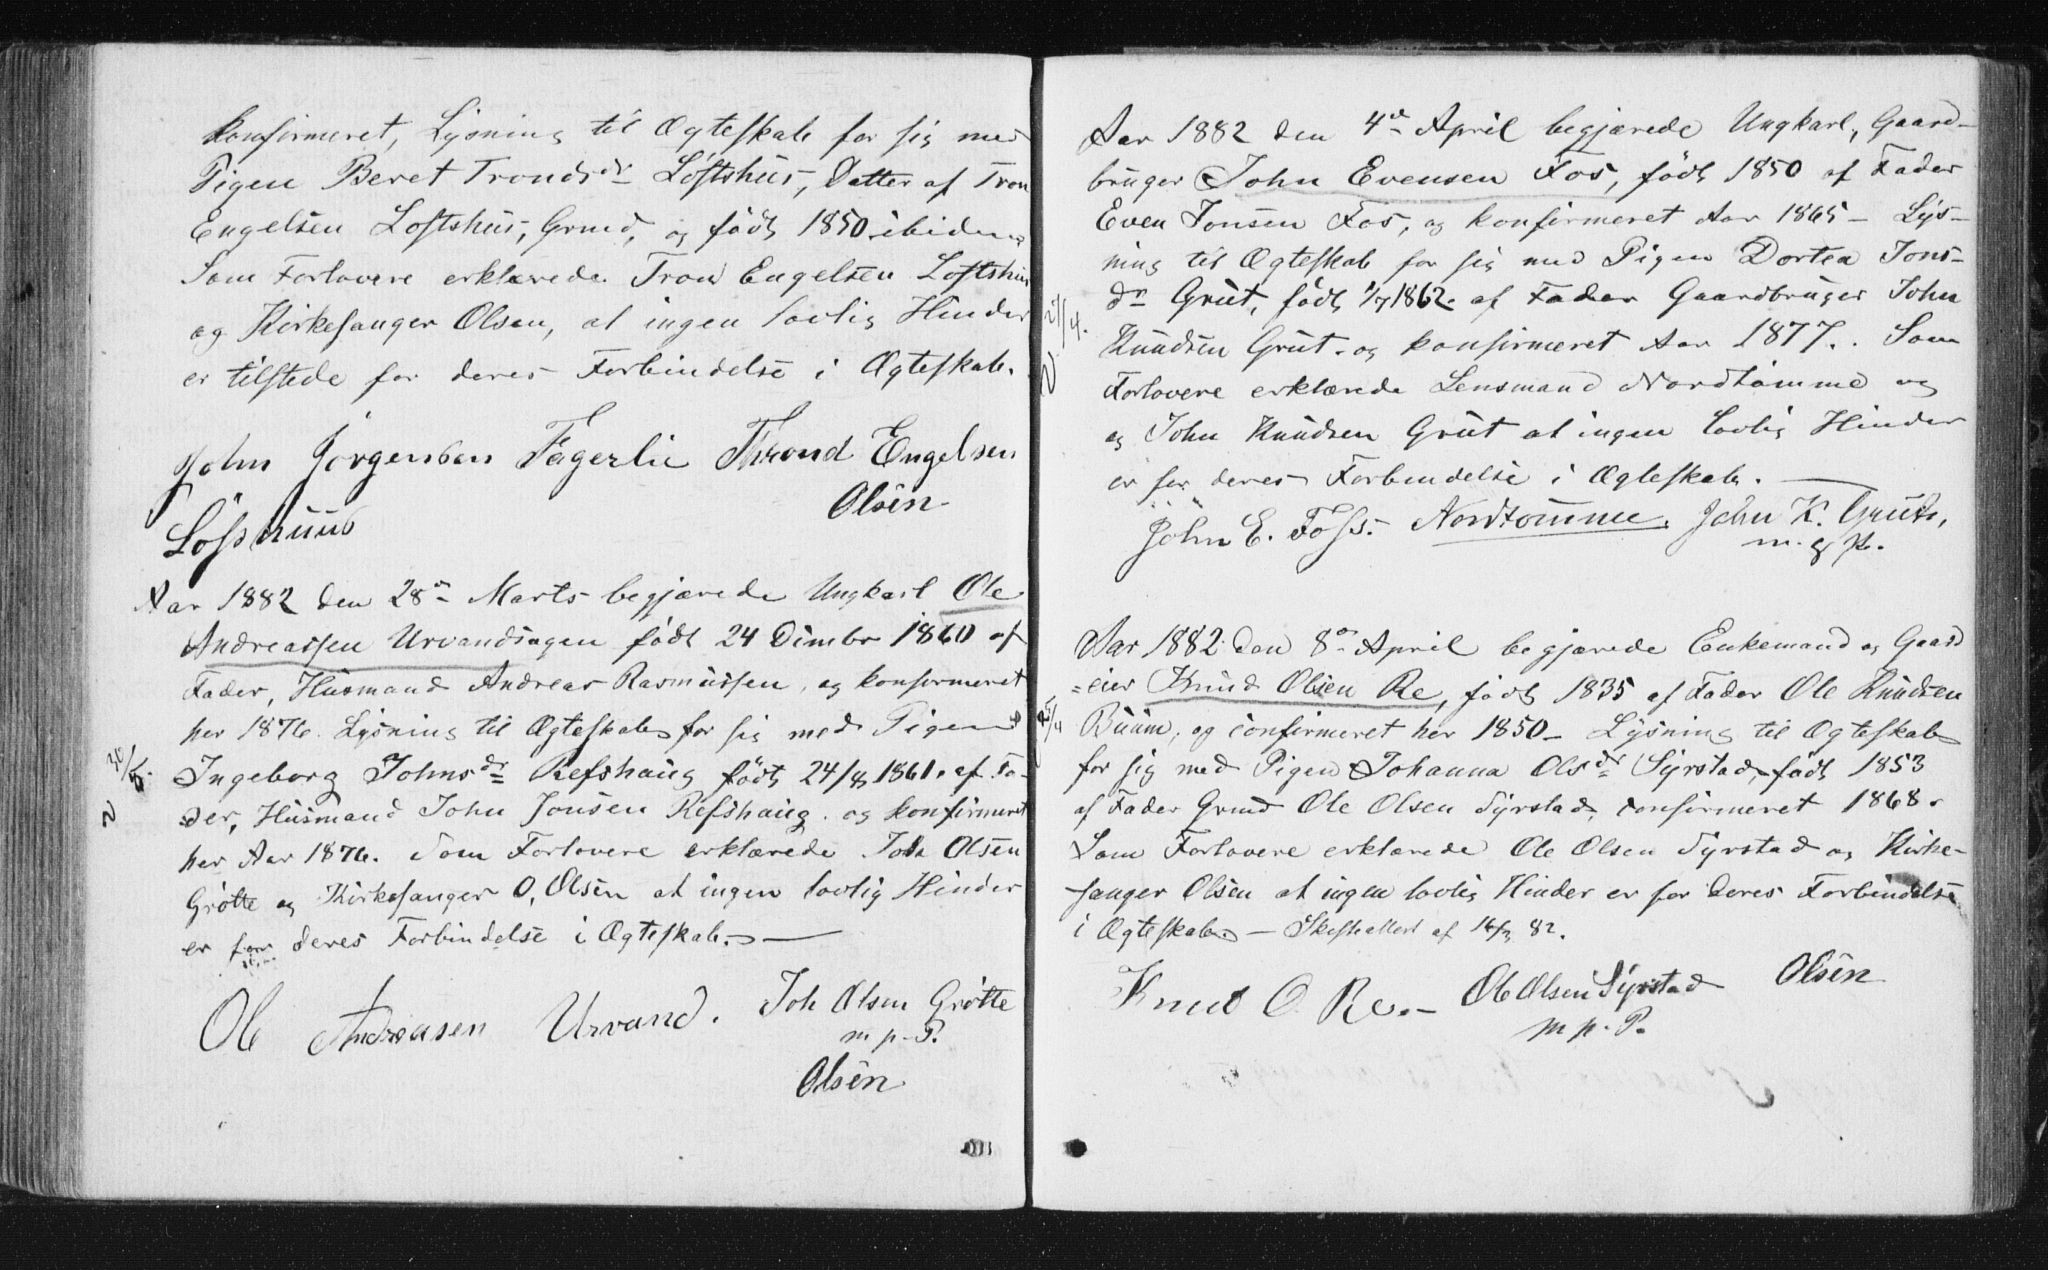 konfirmeret, Lysning til Ægteskab for sig med
Pigen Beret Tronds dr Løftshus, Datter af Tron
Engelsen Loftshus, Grmd, og født 1850 ibidem
Som Forlovere erklærede Tron Engelsen Loftshus
og Kirkesanger Olsen, at ingen lovlig Hinder
er tilstede for deres Forbindelse i Ægteskab.
John Jörgensen Fagerlie Thrond Engelsen
Olsen
Aar 1882 den 28de Marts begjærede Ungkarl Ole
Andreassen Urvandsagen født 24 Dcmbr 1860 af
Fader, Husmand Andreas Rasmussen, og konfirmeret
her 1876. Lysning til Ægteskab for sig med Pigen
Ingeborg Johns dr Refshaug født 24/8 1861. af Fa-
der, Husmand John Jonsen Refshaug. og konfirmeret
her Aar 1876. Som Forlovere erklærede Joh Olsen
Grøtte og Kirkesanger O. Olsen at ingen lovlig Hinder
er for deres Forbindelse i Ægteskab.
Ole Andreasen Urvand. Joh Olsen Grøtte
m p. P.
Olsen
Aar 1882 den 4de April begjærede Ungkarl, Gaard-
bruger John Evensen Fos, født 1850 af Fader
Even Jonsen Fos, og konfirmeret Aar 1865 – Lys-
ning til Ægteskab for sig med Pigen Dortea Jons-
dr Grut, født 1/7 1862. af Fader Gaardbruger John
Knudsen Grut. og konfirmeret Aar 1877. Som
Forlovere erklærede Lensmand Nordtømme og
og John Knudsen Grut at ingen lovlig Hinder
er for deres Forbindelse i Ægteskab.
John E. Foss. Nordtømme. John K. Grut,
m. p.
Aar 1882 den 8de April begjærede Enkemand og Gaard
=eier Knud Olsen Re, født 1835 af Fader Ole Knudsen
og confirmeret her 1850 – Lysning til Ægteskab
for sig med Pigen Johanna Ols dr Syrstad, født 1853
af Fader Grmd Ole Olsen Syrstad, confirmeret 1868.
Som Forlovere erklærede Ole Olsen Syrstad og Kirke-
sanger Olsen at ingen lovlig Hinder er for deres Forbindelse
i Ægteskab. – Skifteattest af 82.
Knud O. Re. – Ole Olsen Syrstad Olsen
m p. P.